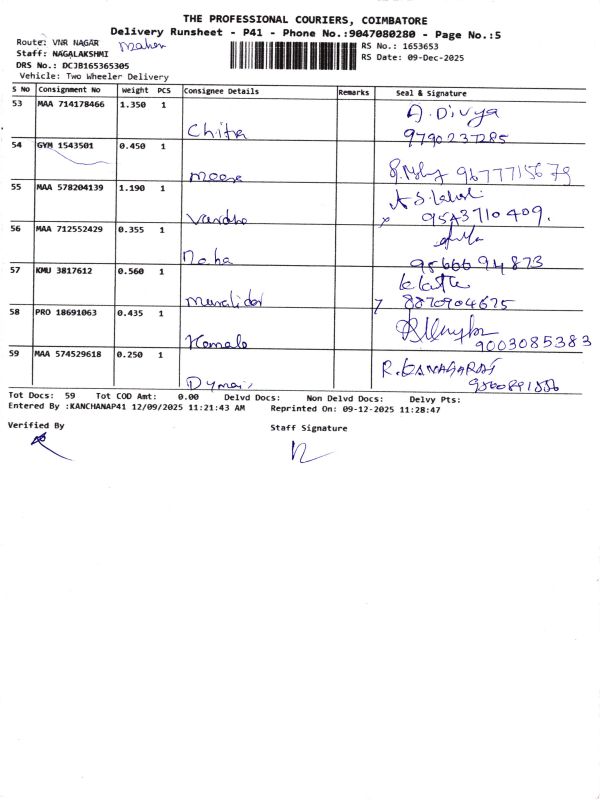 THE PROFESSIONAL COURIERS, COIMBATORE
Delivery Runsheet - P41 - Phone No.:9047080280 - Page No.:5
Route: VNR NAGAR
Staff: NAGALAKSHMI
DRS No.: DCJB165365305
Vehicle: Two Wheeler Delivery
RS No.: 1653653
RS Date: 09-Dec-2025
S No Consignment No Weight PCS Consignee Details Remarks Seal & Signature
53 MAA 714178466 1.350 1 Chitra A. Divya
9790237285
54 GYM 1543501 0.450 1 9677715679
55 MAA 578204139 1.190 1
9543710409.
56 MAA 712552429 0.355 1 Noha
9566694873
57 KMU 3817612 0.560 1 Muralidar
8870904675
58 PRO 18691063 0.435 1
9003085383
59 MAA 574529618 0.250 1 R. KANAGARAJ
Tot Docs: 59 Tot COD Amt: 0.00 Delvd Docs: Non Delvd Docs: Delvy Pts:
Entered By :KANCHANAP41 12/09/2025 11:21:43 AM Reprinted On: 09-12-2025 11:28:47
Verified By
Staff Signature